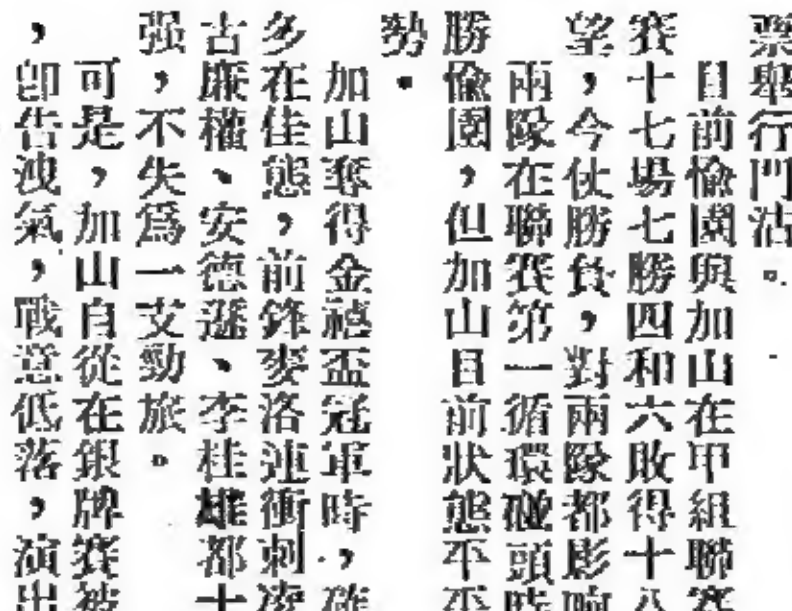 票舉行門沽。
目前愉園與加山在甲組聯賽
賽十七場七勝四和六敗得十八
望，今仗勝負，對兩隊都影响
兩隊在聯賽第一循環碰頭時
勝愉園，但加山目前狀態平平
勢。
加山奪得金禧盃冠軍時，確
多在佳態，前鋒麥洛連衝刺凌
古廉權、安德遜、李桂雄都十
强，不失爲一支勁旅。
可是，加山自從在銀牌賽被
，卽告洩氣，戰意低落，演出